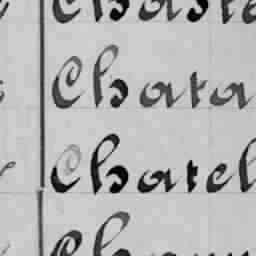 Chaste
Chata
Chatel